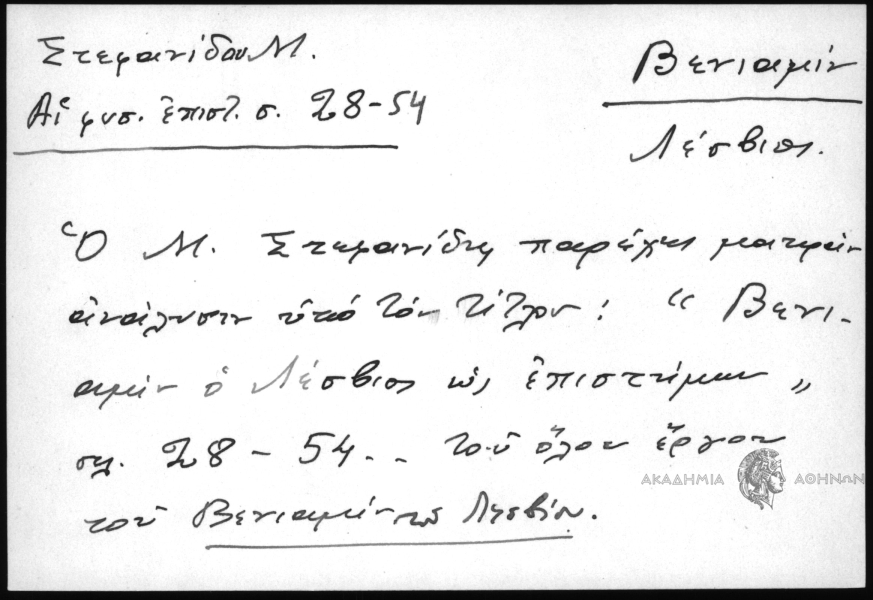 Στεφανίδου Μ.
Αἱ φυσ. ἐπιστ. σ. 28-54
Βενιαμὶν
Λέσβιος.
Ὁ Μ. Στεφανίδης παρέχει μακρὰν
ἀνάλυσιν ὑπὸ τὸν τίτλον: “Βενι-
αμὶν ὁ Λέσβιος ὡς ἐπιστήμων„
σελ. 28-54.. τοῦ ὅλου ἔργου
τοῦ Βενιαμὶν τοῦ Λεσβίου.
ΑΚΑΔΗΜΙΑ ΑΘΗΝΩΝ